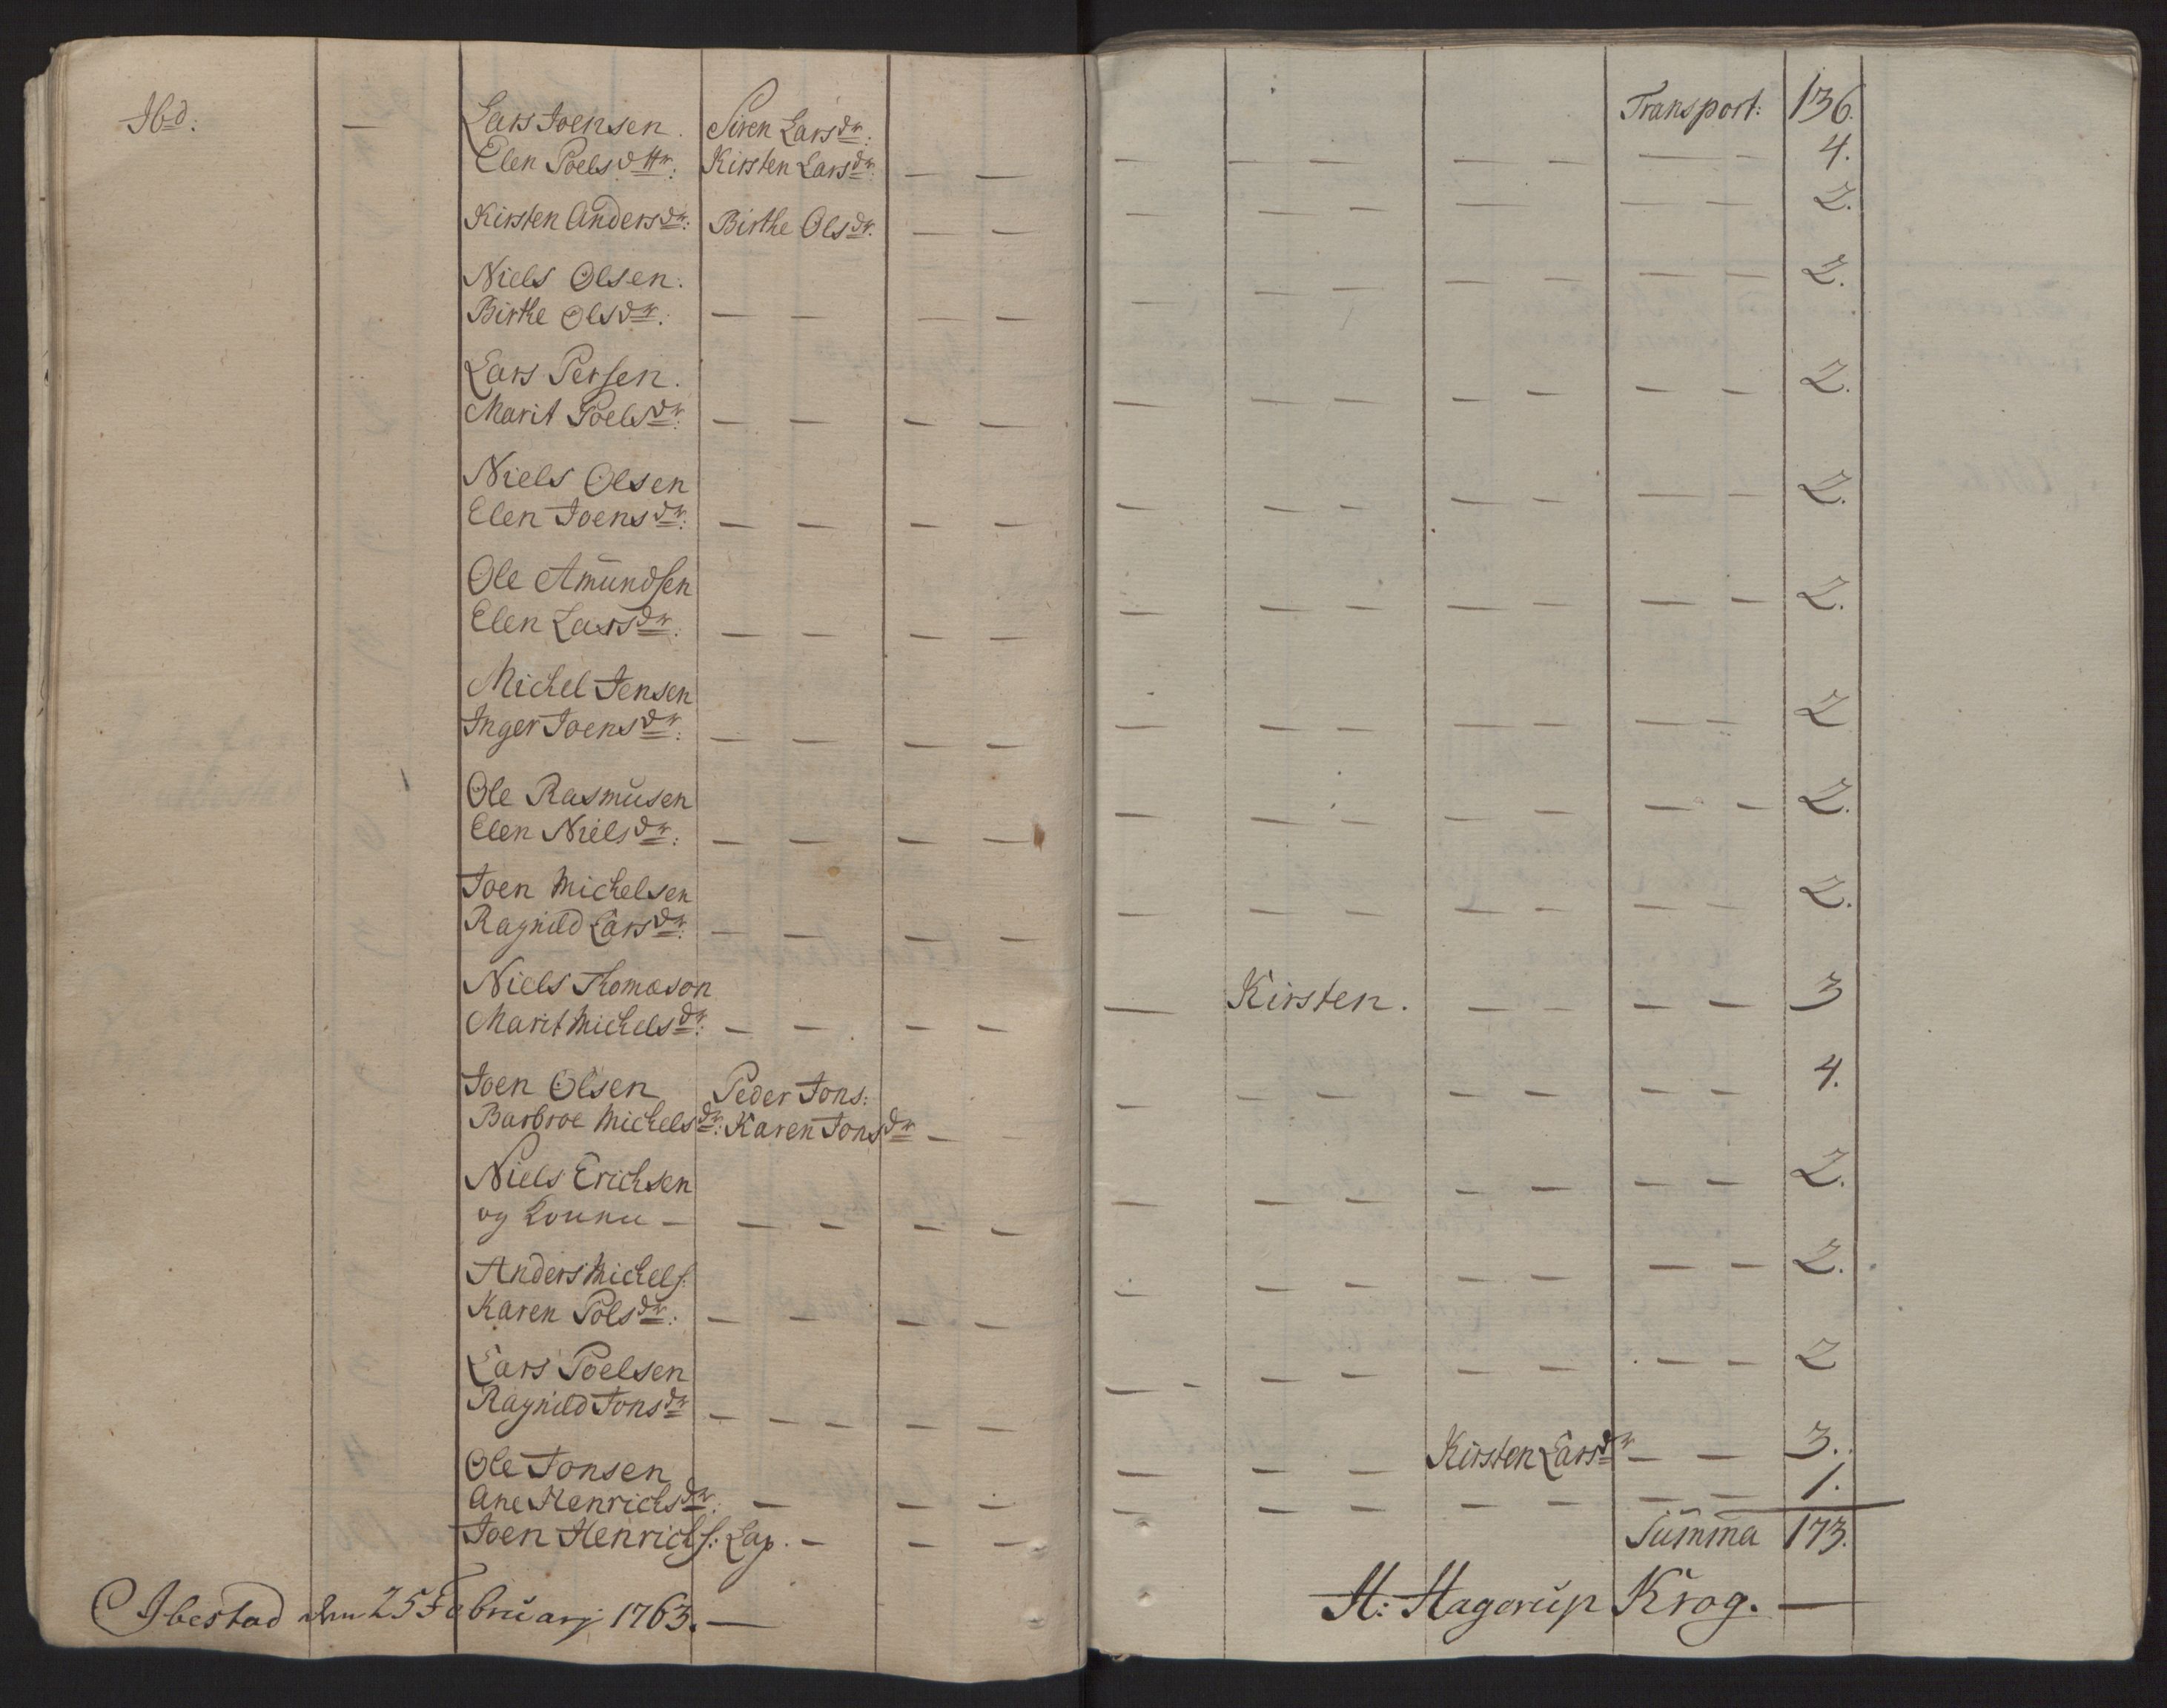 Ibd: — Lars Joensen. Siren Larsdr: Transport: 136.
Elen Poelsdttr: Kirsten Larsdr: — — — — — — — — — 4.
Kirsten Andersdr: Birthe Olsdr. — — — — — — — — — 2.
Niels Olsen: 2.
Birthe Olsdr: — — — — — — — — — — —
Lars Persen. 2.
Marit Poelsdr: — — — — — — — — — — —
Niels Olsen 2.
Elen Joensdr: — — — — — — — — — — —
Ole Amundsen 2.
Elen Larsdr: — — — — — — — — — — —
Michel Jensen 2
Inger Joensdr: — — — — — — — — — — —
Ole Rasmusen 2.
Elen Nielsdr: — — — — — — — — — — —
Joen Michelsen 2.
Ragnild Larsdr: — — — — — — — — — — —
Niels Thomason — Kirsten. — — — — 3
Marit Michelsdr: — — — —
Joen Olsen Peder Jons: 4.
Barbroe Michelsdr: Karen Jonsdr — — — — — — — — —
Niels Erichsen 2.
og Konnu — — — — — — — — — — — —
Anders Michels: 2.
Karen Polsdr: — — — — — — — — — —
Lars Poelsen 2
Ragnild Jonsdr — — — — — — — — — — — — —
Ole Jonsen — — — Kirsten Larsdr — — 3.
Ane Henrichsdr: — — — — — — — — — — 1.
Joen Henrichs: Lap. — — — Summa 173.
Ibestad den 25 Februarj 1763. — H: Hagerup Krog. —